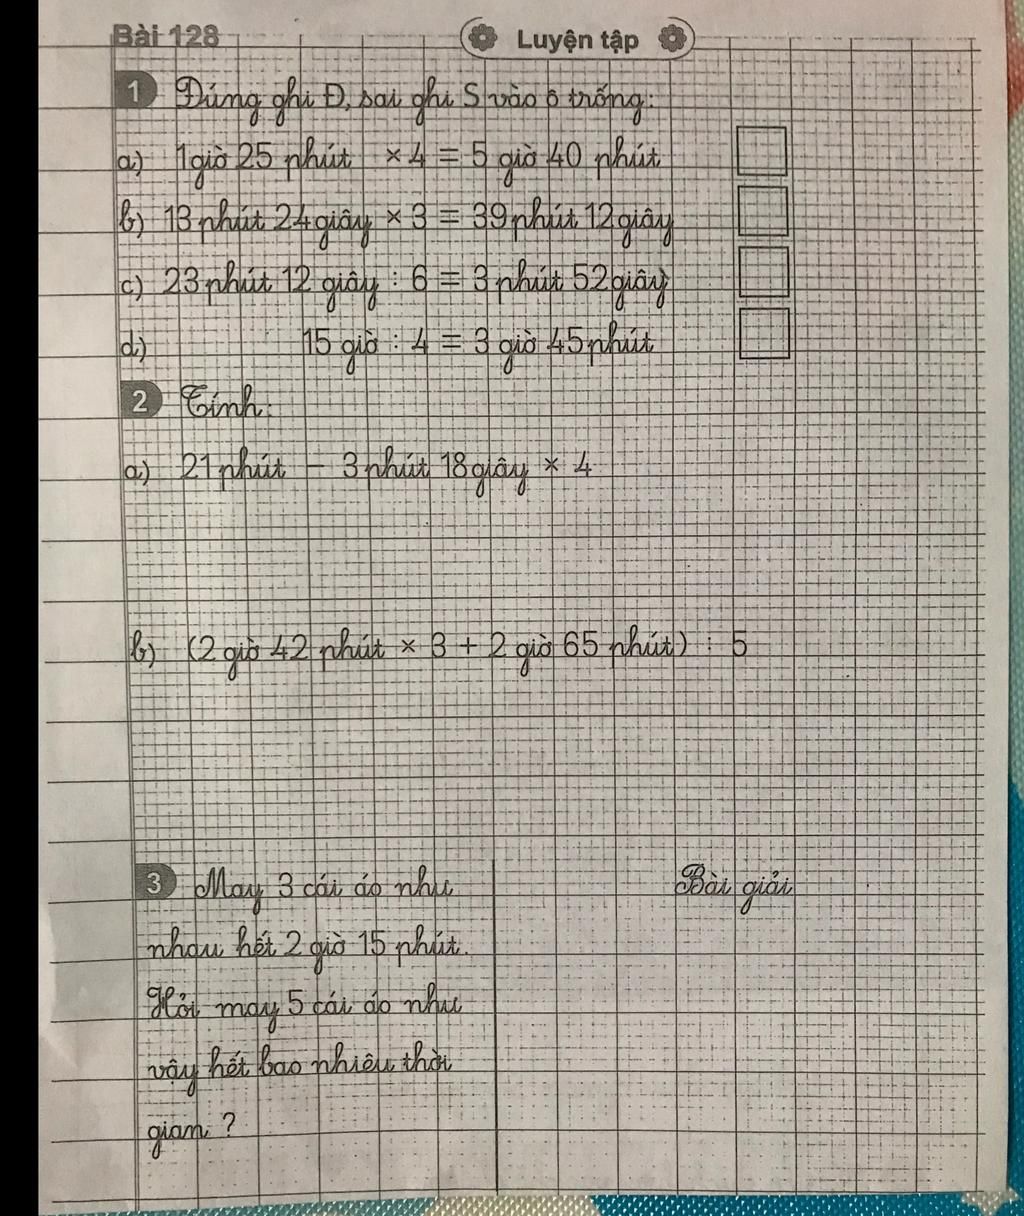 Bài 128
Luyện tập
1 Đúng ghi Đ, sai ghi S vào ô trống:
a) 1 giờ 25 phút × 4 = 5 giờ 40 phút
b) 13 phút 24 giây × 3 = 39 phút 12 giây
c) 23 phút 12 giây : 6 = 3 phút 52 giây
d) 15 giờ : 4 = 3 giờ 45 phút
2 Tính:
a) 21 phút - 3 phút 18 giây × 4
b) (2 giờ 42 phút × 3 + 2 giờ 65 phút) : 5
3 May 3 cái áo như
nhau hết 2 giờ 15 phút.
Hỏi may 5 cái áo như
vậy hết bao nhiêu thời
gian ?
Bài giải